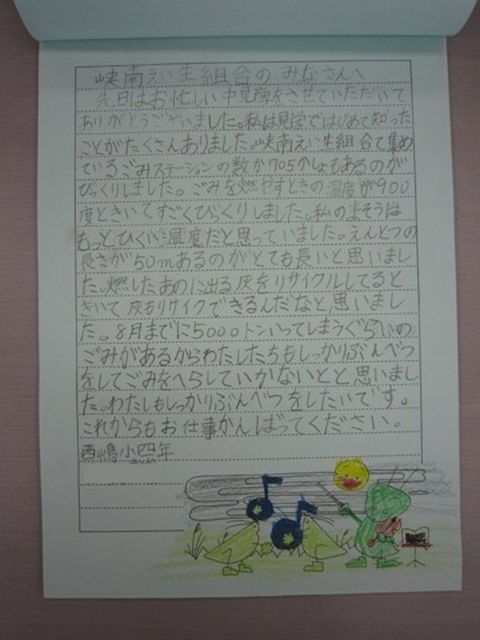 峡南えい生組合のみなさんへ
先日はお忙しい中見学をさせていただいて
ありがとうございました。私は見学ではじめて知った
ことがたくさんありました。峡南えい生組合で集め
ているごみステーションの数が705かしょもあるのが
びっくりしました。ごみを燃やすときの温度が900
度ときいてすごくびっくりしました。私のよそうは
もっとひくい温度だと思っていました。えんとつの
長さが50mあるのがとても長いと思いまし
た。燃したあのに出る灰をリサイクルしてると
きいて灰もリサイクできるんだなと思いまし
た。8月までに5000トンいってしまうぐらいの
ごみがあるからわたしたちもしっかりぶんべつ
をしてごみをへらしていかないとと思いまし
た。わたしもしっかりぶんべつをしたいです。
これからもお仕事がんばってください。
西嶋小四年